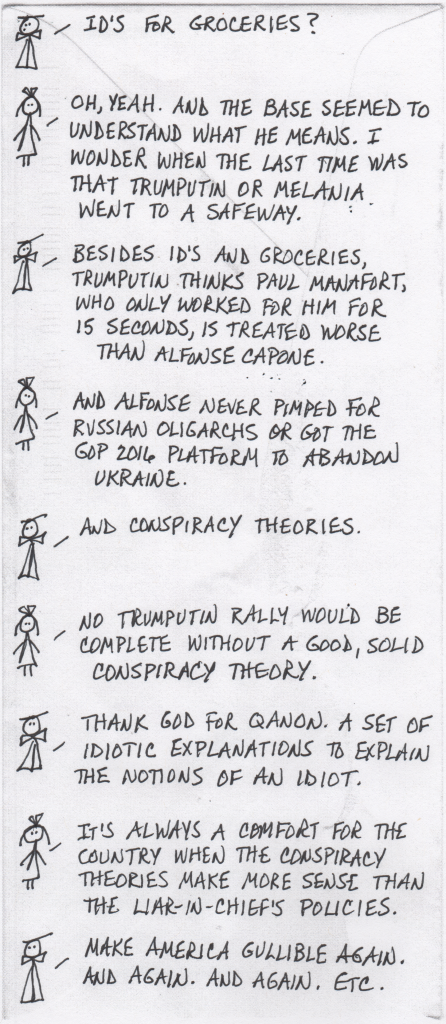 ID'S FOR GROCERIES?
OH, YEAH. AND THE BASE SEEMED TO
UNDERSTAND WHAT HE MEANS. I
WONDER WHEN THE LAST TIME WAS
THAT TRUMPUTIN OR MELANIA
WENT TO A SAFEWAY.
BESIDES ID'S AND GROCERIES,
TRUMPUTIN THINKS PAUL MANAFORT,
WHO ONLY WORKED FOR HIM FOR
15 SECONDS, IS TREATED WORSE
THAN ALFONSE CAPONE.
AND ALFONSE NEVER PIMPED FOR
RUSSIAN OLIGARCHS OR GOT THE
GOP 2016 PLATFORM TO ABANDON
UKRAINE.
AND CONSPIRACY THEORIES.
NO TRUMPUTIN RALLY WOULD BE
COMPLETE WITHOUT A GOOD, SOLID
CONSPIRACY THEORY.
THANK GOD FOR QANON. A SET OF
IDIOTIC EXPLANATIONS TO EXPLAIN
THE NOTIONS OF AN IDIOT.
IT'S ALWAYS A COMFORT FOR THE
COUNTRY WHEN THE CONSPIRACY
THEORIES MAKE MORE SENSE THAN
THE LIAR-IN-CHIEF'S POLICIES.
MAKE AMERICA GULLIBLE AGAIN.
AND AGAIN. AND AGAIN. ETC.